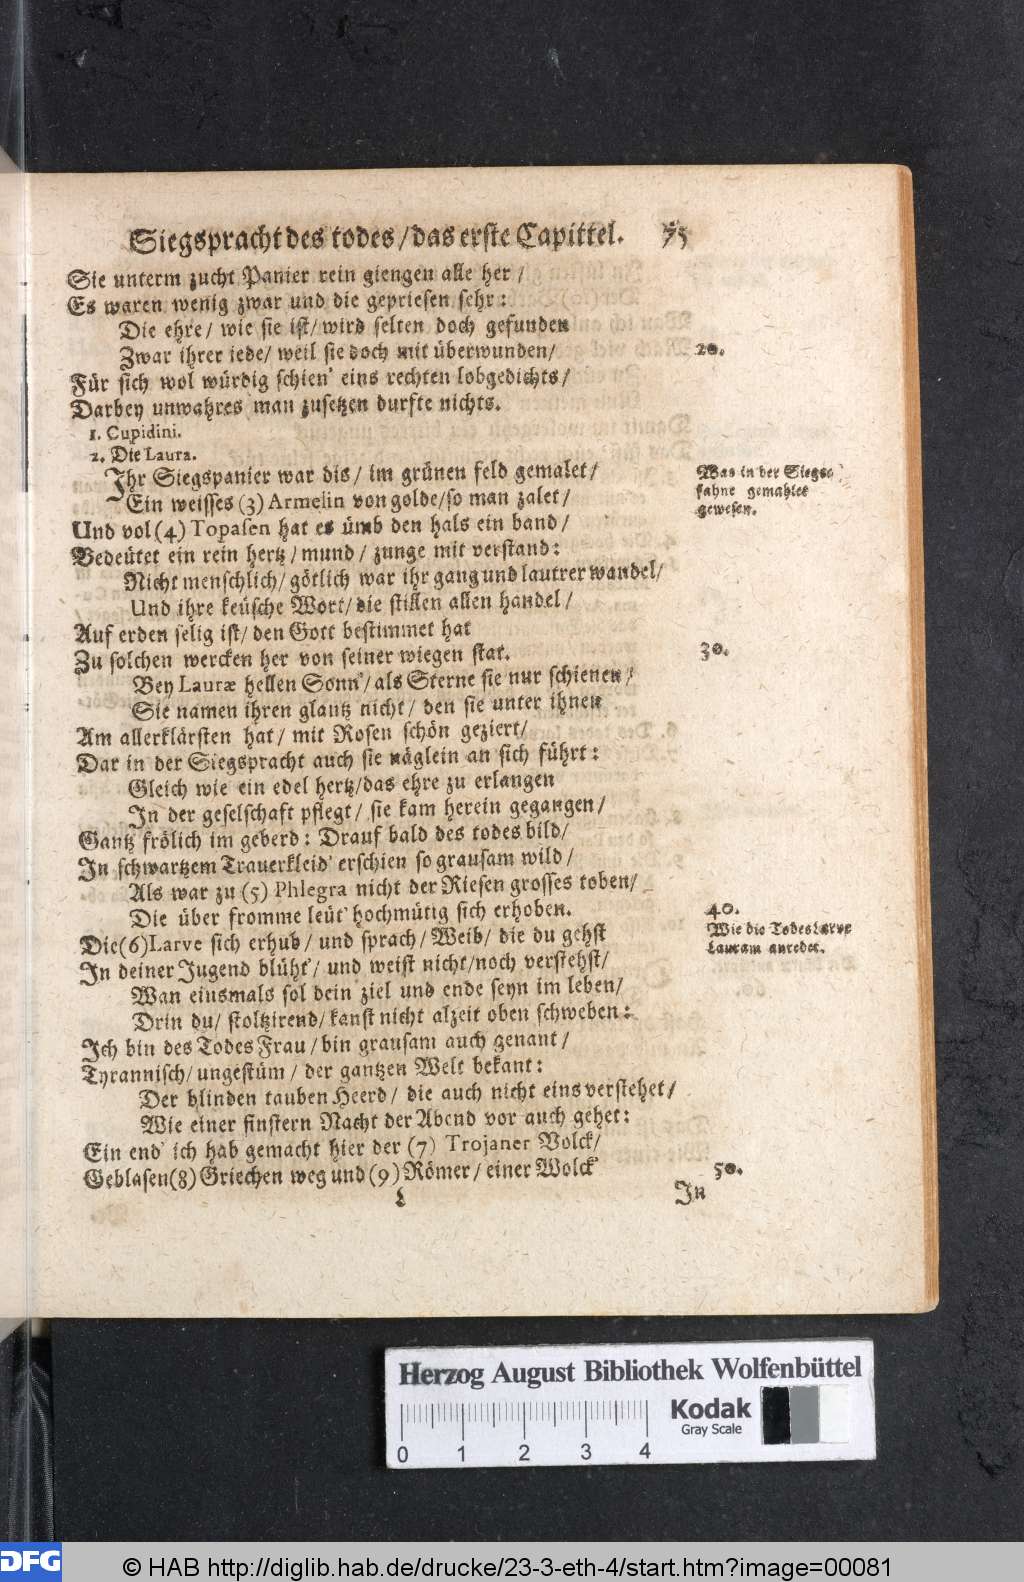 Siegspracht des todes / das erste Capittel. 75
Sie unterm zucht Panier rein giengen alle her /
Es waren wenig zwar und die gepriesen sehr :
Die ehre / wie sie ist / wird selten doch gefunden
Zwar ihrer iede / weil sie doch mit überwunden / 20.
Für sich wol würdig schien' eins rechten lobgedichts /
Darbey unwahres man zusetzen durfte nichts.
1. Cupidini.
2. Die Laura.
Ihr Siegspanier war dis / im grünen feld gemalet /
Ein weisses (3) Armelin von golde / so man zalet /
Und vol (4) Topasen hat es ümb den hals ein band /
Bedeütet ein rein hertz / mund / zunge mit verstand :
Nicht menschlich / götlich war ihr gang und lautrer wandel /
Und ihre keüsche Wort / die stillen allen handel /
Auf erden selig ist / den Gott bestimmet hat
Zu solchen wercken her von seiner wiegen stat. 30.
Bey Lauræ hellen Sonn' / als Sterne sie nur schienen /
Sie namen ihren glantz nicht / den sie unter ihnen
Am allerklärsten hat / mit Rosen schön geziert /
Dar in der Siegspracht auch sie näglein an sich führt :
Gleich wie ein edel hertz / das ehre zu erlangen
In der geselschaft pflegt / sie kam herein gegangen /
Gantz frölich im geberd : Drauf bald des todes bild /
In schwartzem Trauerkleid' erschien so grausam wild /
Als war zu (5) Phlegra nicht der Riesen grosses toben /
Die über fromme leüt' hochmütig sich erhoben. 40.
Die (6) Larve sich erhub / und sprach / Weib / die du gehst
In deiner Jugend blüht' / und weist nicht / noch verstehst /
Wan einsmals sol dein ziel und ende seyn im leben /
Drin du / stoltzirend / kanst nicht alzeit oben schweben :
Ich bin des Todes Frau / bin grausam auch genant /
Tyrannisch / ungestüm / der gantzen Welt bekant :
Der blinden tauben Heerd / die auch nicht eins verstehet /
Wie einer finstern Nacht der Abend vor auch gehet :
Ein end' ich hab gemacht hier der (7) Trojaner Volck /
Geblasen (8) Griechen weg und (9) Römer / einer Wolck' 50.
L In
Was in der Siegs-
fahne gemahlet
gewesen.
Wie die Todes Larve
Lauram anredet.
Herzog August Bibliothek Wolfenbüttel
0 1 2 3 4
Kodak
Gray Scale
DFG
© HAB http://diglib.hab.de/drucke/23-3-eth-4/start.htm?image=00081